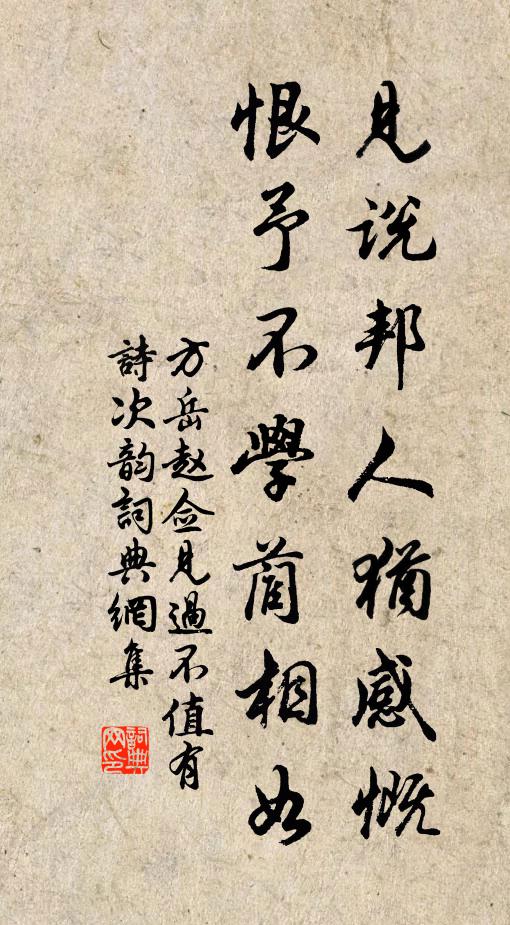 見説邦人猶感慨
恨予不學藺相如
方岳赵佥見過不值有
詩次韵詞典網集
詞典网印